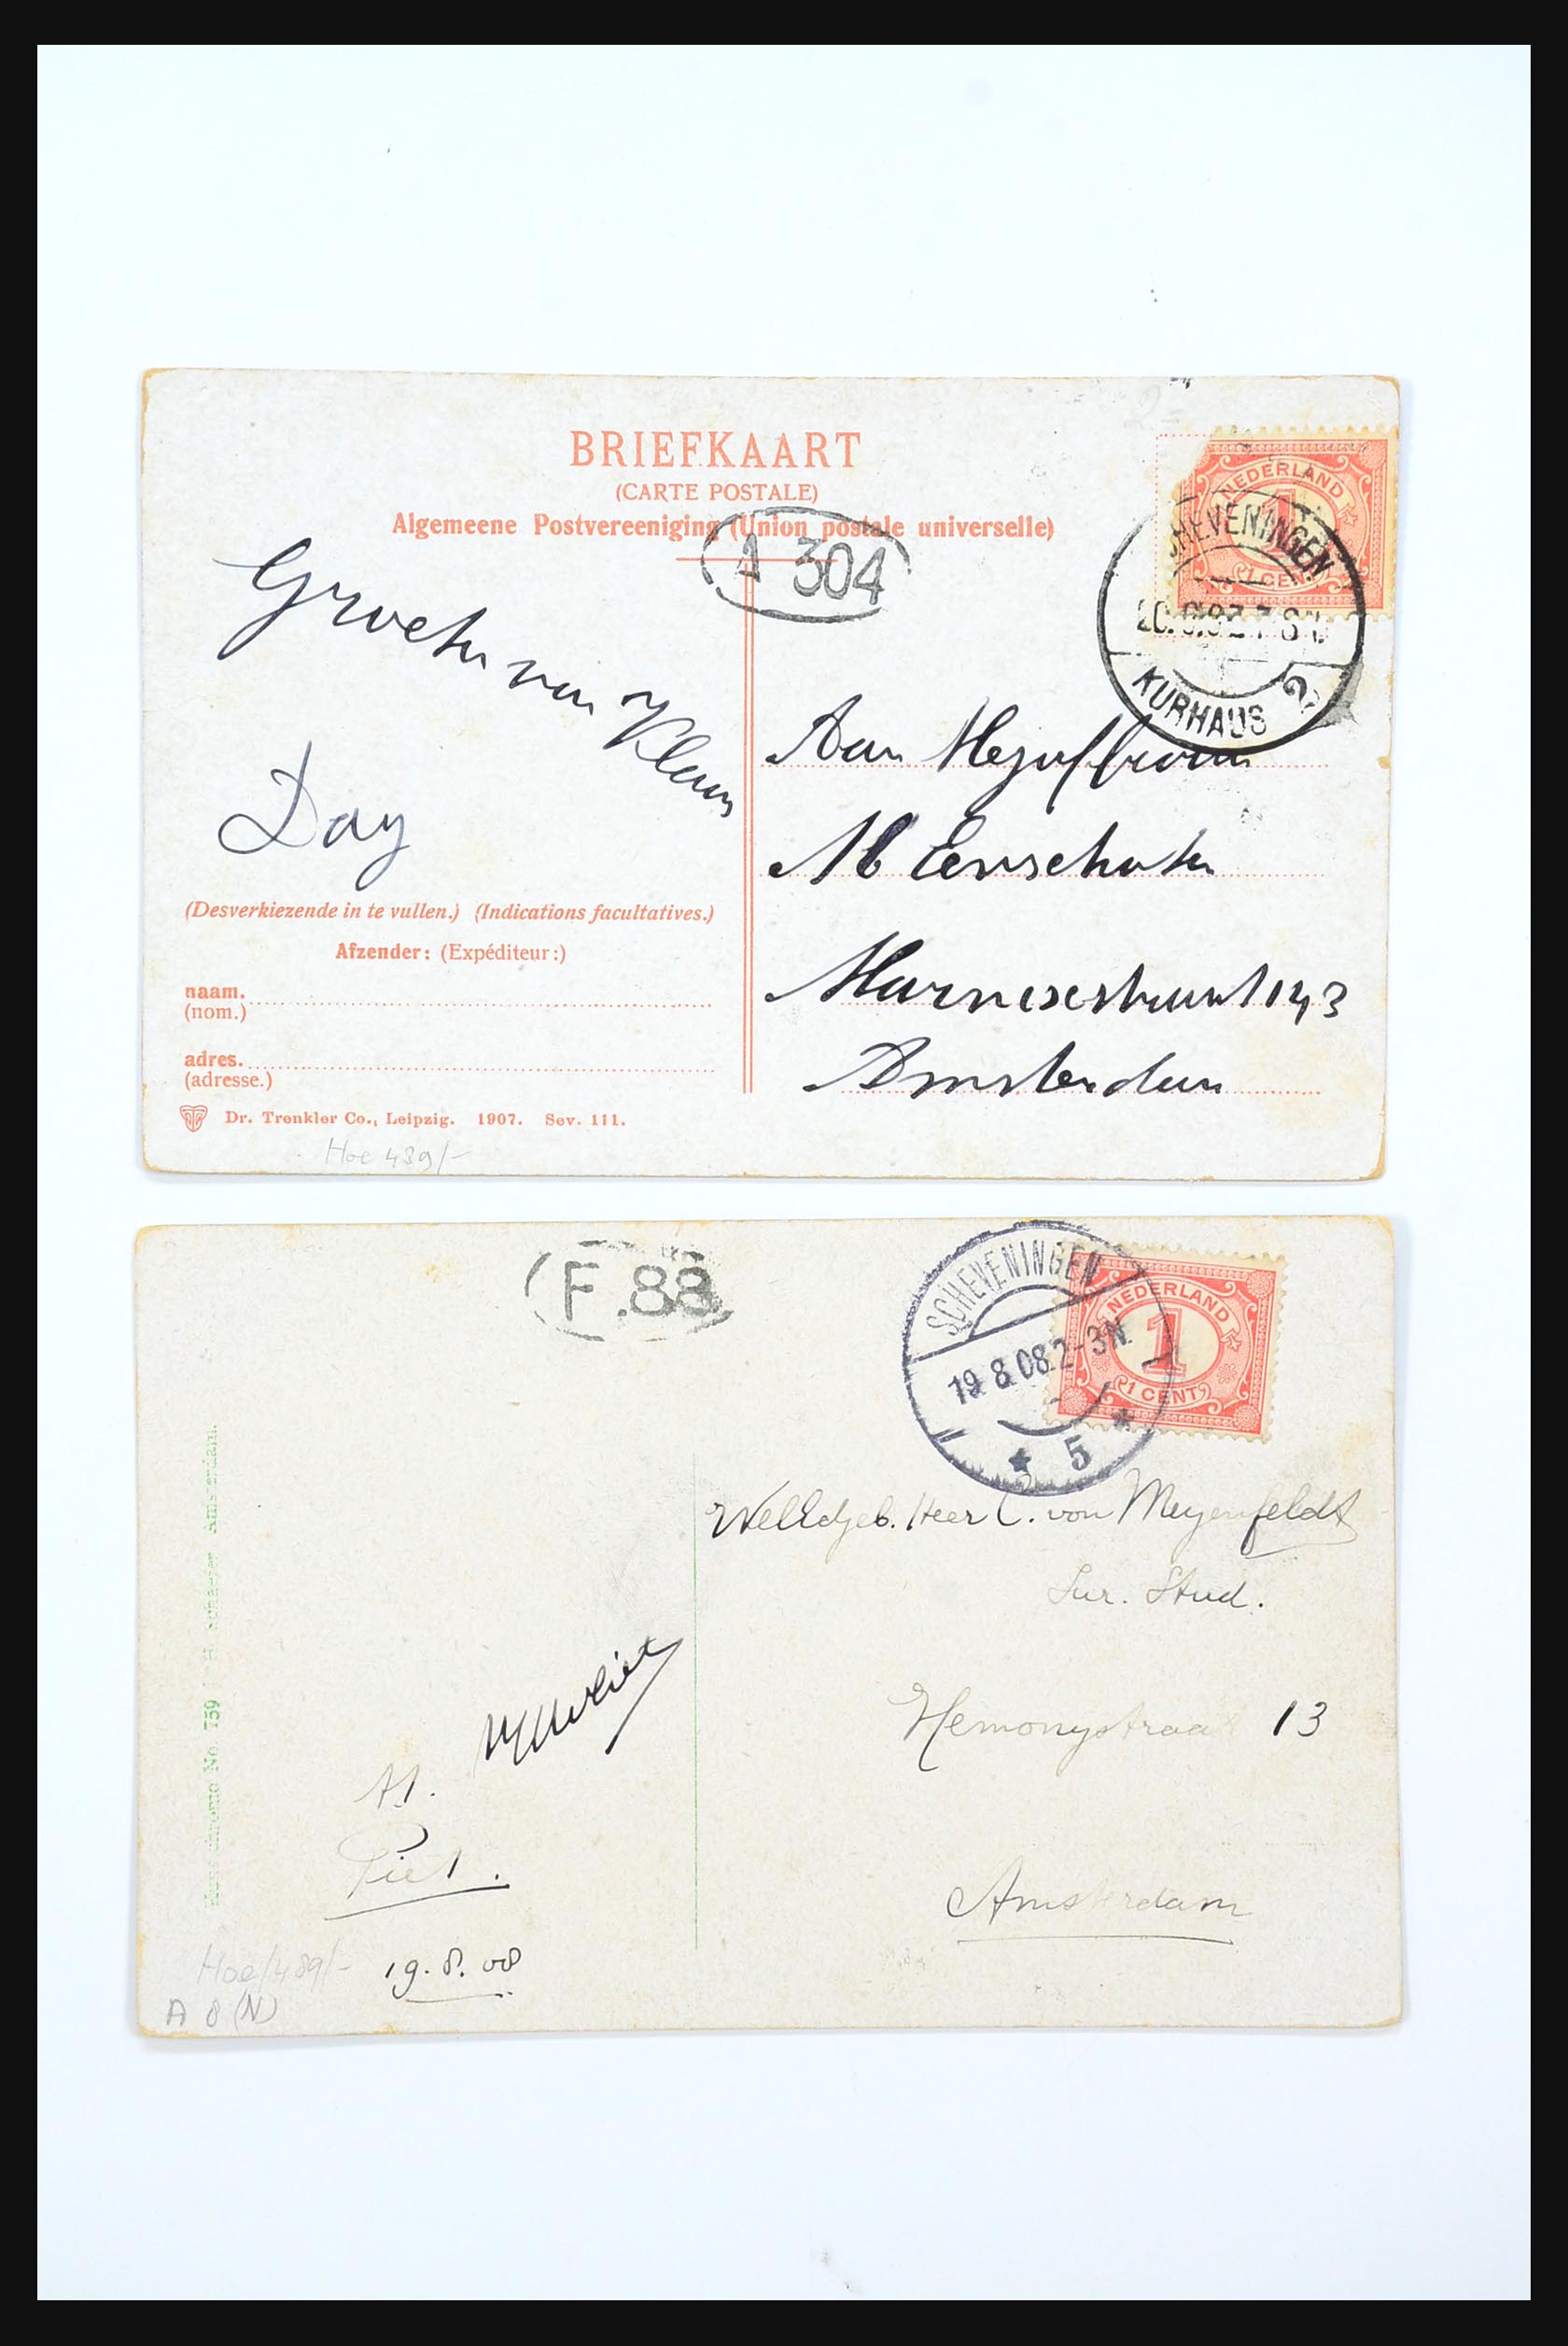 BRIEFKAART
(CARTE POSTALE)
Algemeene Postvereeniging (Union postale universelle)
A 304
NEDERLAND
1
1 CENT
SCHEVENINGEN
KURHAUS 2
Groeten van Klaas
Day
Aan Mejuffrouw
M Enschate
Marnixstraat 143
Amsterdam
(Desverkiezende in te vullen.) (Indications facultatives.)
Afzender: (Expéditeur:)
naam.
(nom.)
adres.
(adresse.)
Dr. Trenkler Co., Leipzig. 1907. Sev. 111.
Hoe 489/-
F.88
SCHEVENINGEN
19.8.08.2-3N.
* 5 *
NEDERLAND
1
1 CENT
WelEdgeb. Heer C. von Meyenfeldt
Jur. Stud.
Hemonystraat 13
Amsterdam
Piet.
19.8.08
No. 759
Schaefer Amsterdam.
Hoe/489/-
A 8 (N)